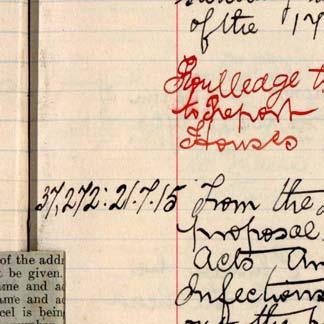 of the 17
Routledge t
to Report
Houses
37,272: 21.7.15 From the
proposal
Acts An
Infections
of the addr
t be given.
me and ad
ame and ad
cel is being